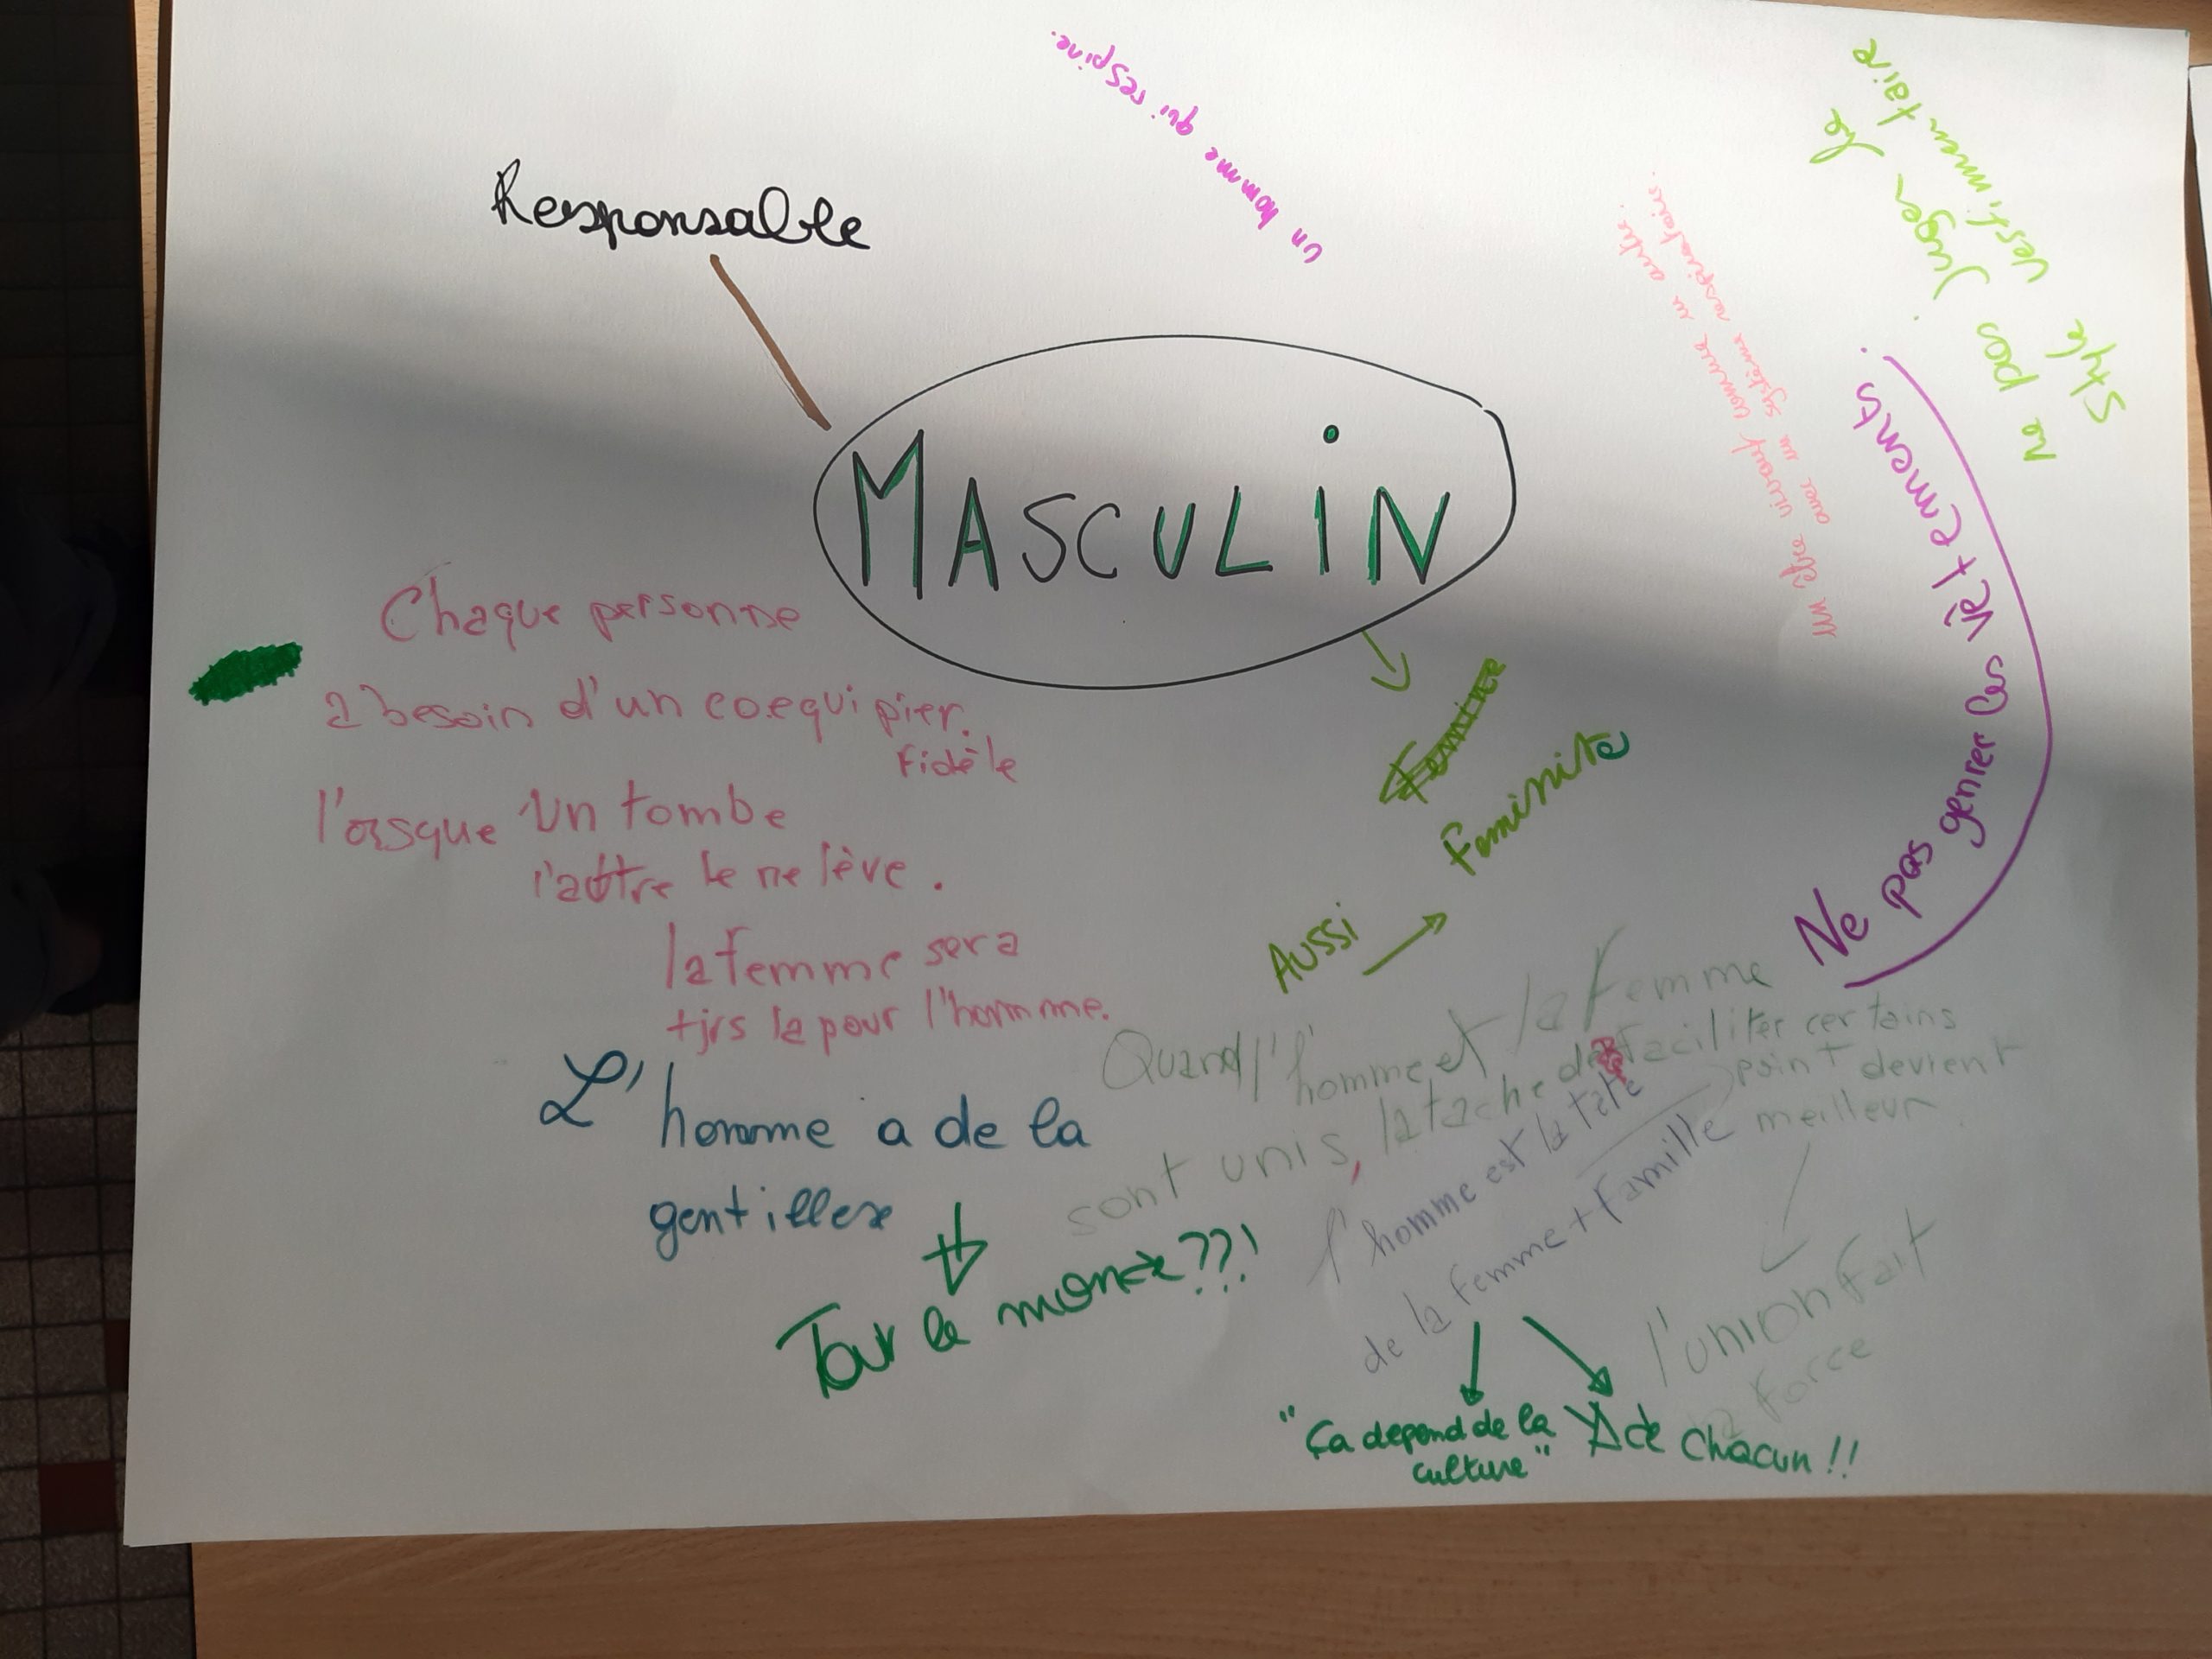 un homme qui respire.
Responsable
ne pas Juger le
style vestimentaire
un être vivant comme un autre.
avec un système respiratoire.
MASCULiN
Ne pas genrer les vêtements.
Chaque personne
a besoin d'un coequipier.
Fidèle
l'orsque un tombe
l'autre le relève.
la femme sera
tjrs la pour l'homme.
Feminité
Aussi
L'homme a de la
gentillesse
Tout le monde??!
Quand l'homme et la femme
sont unis, la tache de faciliter certains
point devient
meilleur.
l'union fait
la force
l'homme est la tête
de la femme + famille
"Ça depend de la
culture"
de chacun!!